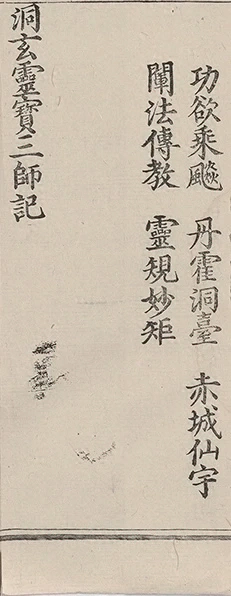 功欲乘飈　丹霍洞臺　赤城仙宇
闡法傳教　靈規妙矩
洞玄靈寶三師記